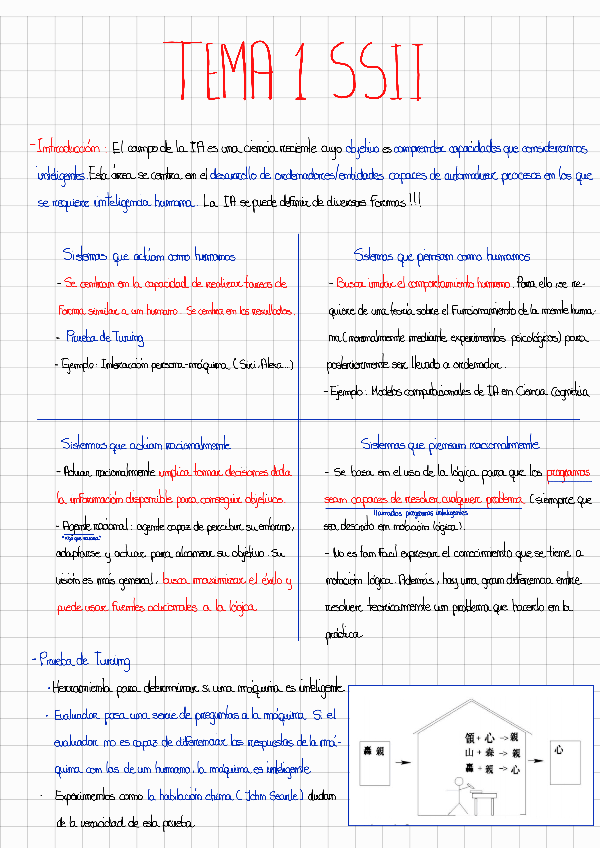 TEMA 1 SSII
- Introducción: El campo de la IA es una ciencia reciente cuyo objetivo es comprender capacidades que consideramos
inteligentes. Esta área se centra en el desarrollo de ordenadores/entidades capaces de automatizar procesos en los que
se requiere inteligencia humana. La IA se puede definir de diversas formas!!!
Sistemas que actúan como humanos
- Se centran en la capacidad de realizar tareas de
forma similar a un humano. Se centra en los resultados.
- Prueba de Turing
- Ejemplo: Interacción persona-máquina (Siri, Alexa...)
Sistemas que piensan como humanos
- Busca imitar el comportamiento humano. Para ello se re-
quiere de una teoría sobre el funcionamiento de la mente huma-
na (normalmente mediante experimentos psicológicos) para
posteriormente ser llevado a ordenador.
- Ejemplo: Modelos computacionales de IA en Ciencia Cognitiva
Sistemas que actúan racionalmente
- Actuar racionalmente implica tomar decisiones dada
la información disponible para conseguir objetivos.
- Agente racional: agente capaz de percibir su entorno,
adaptarse y actuar para alcanzar su objetivo. Su
visión es más general, busca maximizar el éxito y
puede usar fuentes adicionales a la lógica
Sistemas que piensan racionalmente
- Se basa en el uso de la lógica para que los programas
sean capaces de resolver cualquier problema (siempre que
llamados programas inteligentes
sea descrito en notación lógica).
- No es tan fácil expresar el conocimiento que se tiene a
notación lógica. Además, hay una gran diferencia entre
resolver teóricamente un problema que hacerlo en la
práctica
- Prueba de Turing
· Herramienta para determinar si una máquina es inteligente
· Evaluador pasa una serie de preguntas a la máquina. Si el
evaluador no es capaz de diferenciar las respuestas de la má-
quina con las de un humano, la máquina es inteligente
· Experimentos como la habitación china (John Searle) dudan
de la veracidad de esta prueba
領 + 心 -> 親
山 + 森 -> 親
轟 + 親 -> 心
轟 親
心